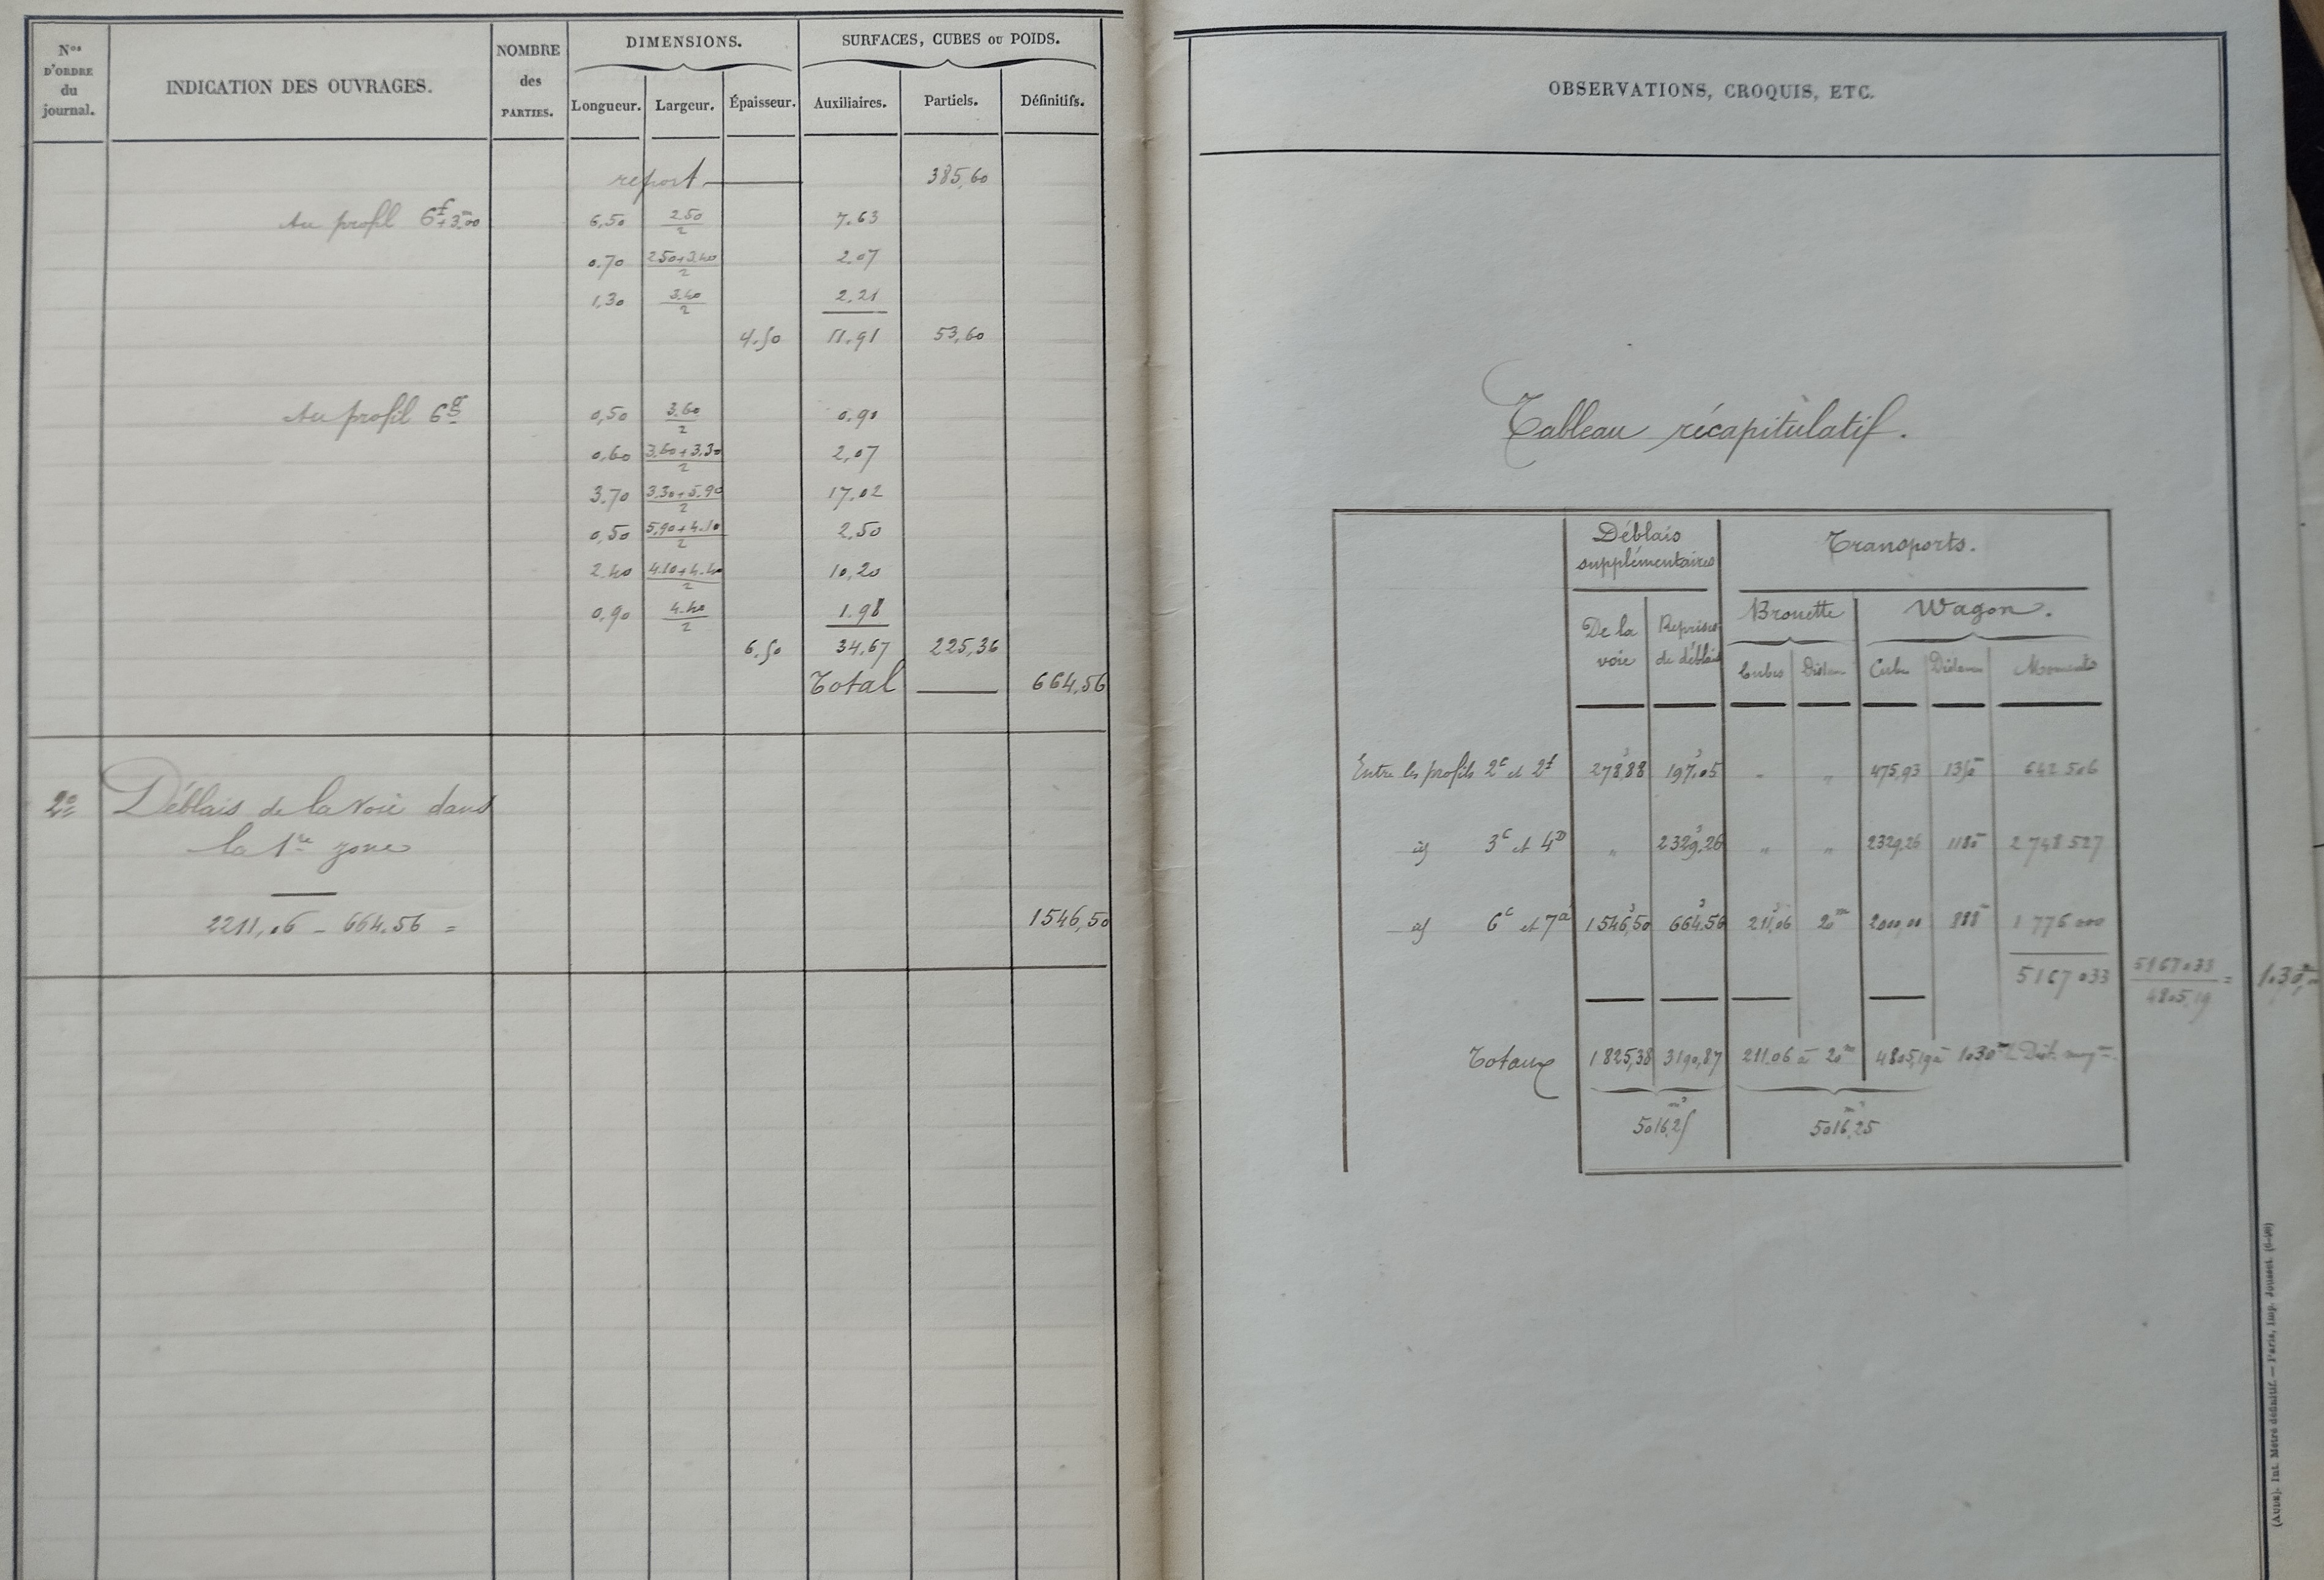 Nos D'ORDRE du journal.
INDICATION DES OUVRAGES.
NOMBRE des PARTIES.
DIMENSIONS.
Longueur. Largeur. Épaisseur.
SURFACES, CUBES OU POIDS.
Auxiliaires. Partiels. Définitifs.
report 385,60
Au profil 6f+3m00 6,50 2.50/2 7.63
0.70 2.50+3.40/2 2.07
1,30 3.40/2 2.21
4.50 11.91 53,60
Au profil 6g 0,50 3.60/2 0.90
0,60 3.60+3.30/2 2,07
3.70 3.30+5.90/2 17.02
0,50 5,90+4.10/2 2,50
2.40 4.10+4.40/2 10,20
0,90 4.40/2 1.98
6,50 34,67 225,36
Total 664,56
2o Déblais de la voie dans
la 1re zone
2211,06 - 664.56 = 1546,50
OBSERVATIONS, CROQUIS, ETC.
Tableau récapitulatif.
Déblais supplémentaires
Transports.
De la voie
Reprises de déblais
Brouette
Wagon.
Cubes Distan Cubes Distances Moments
Entre les profils 2c et 2f 278,88 197,05 " " 475,93 1350m 642 506
id 3c et 4D " 2329,26 " " 2329,26 1180m 2 748 527
id 6c et 7a 1546,50 664,56 211,06 20m 2000,00 888m 1 776 000
5 167 033 5167033/4805,19 = 1030m
Totaux 1825,38 3190,87 211,06 à 20m 4805,19 à 1030m Dist. moyne
5016,25 m3 5016,25 m3
(AUDE). Int. Métré définitif. — Paris, Imp. Jousset.